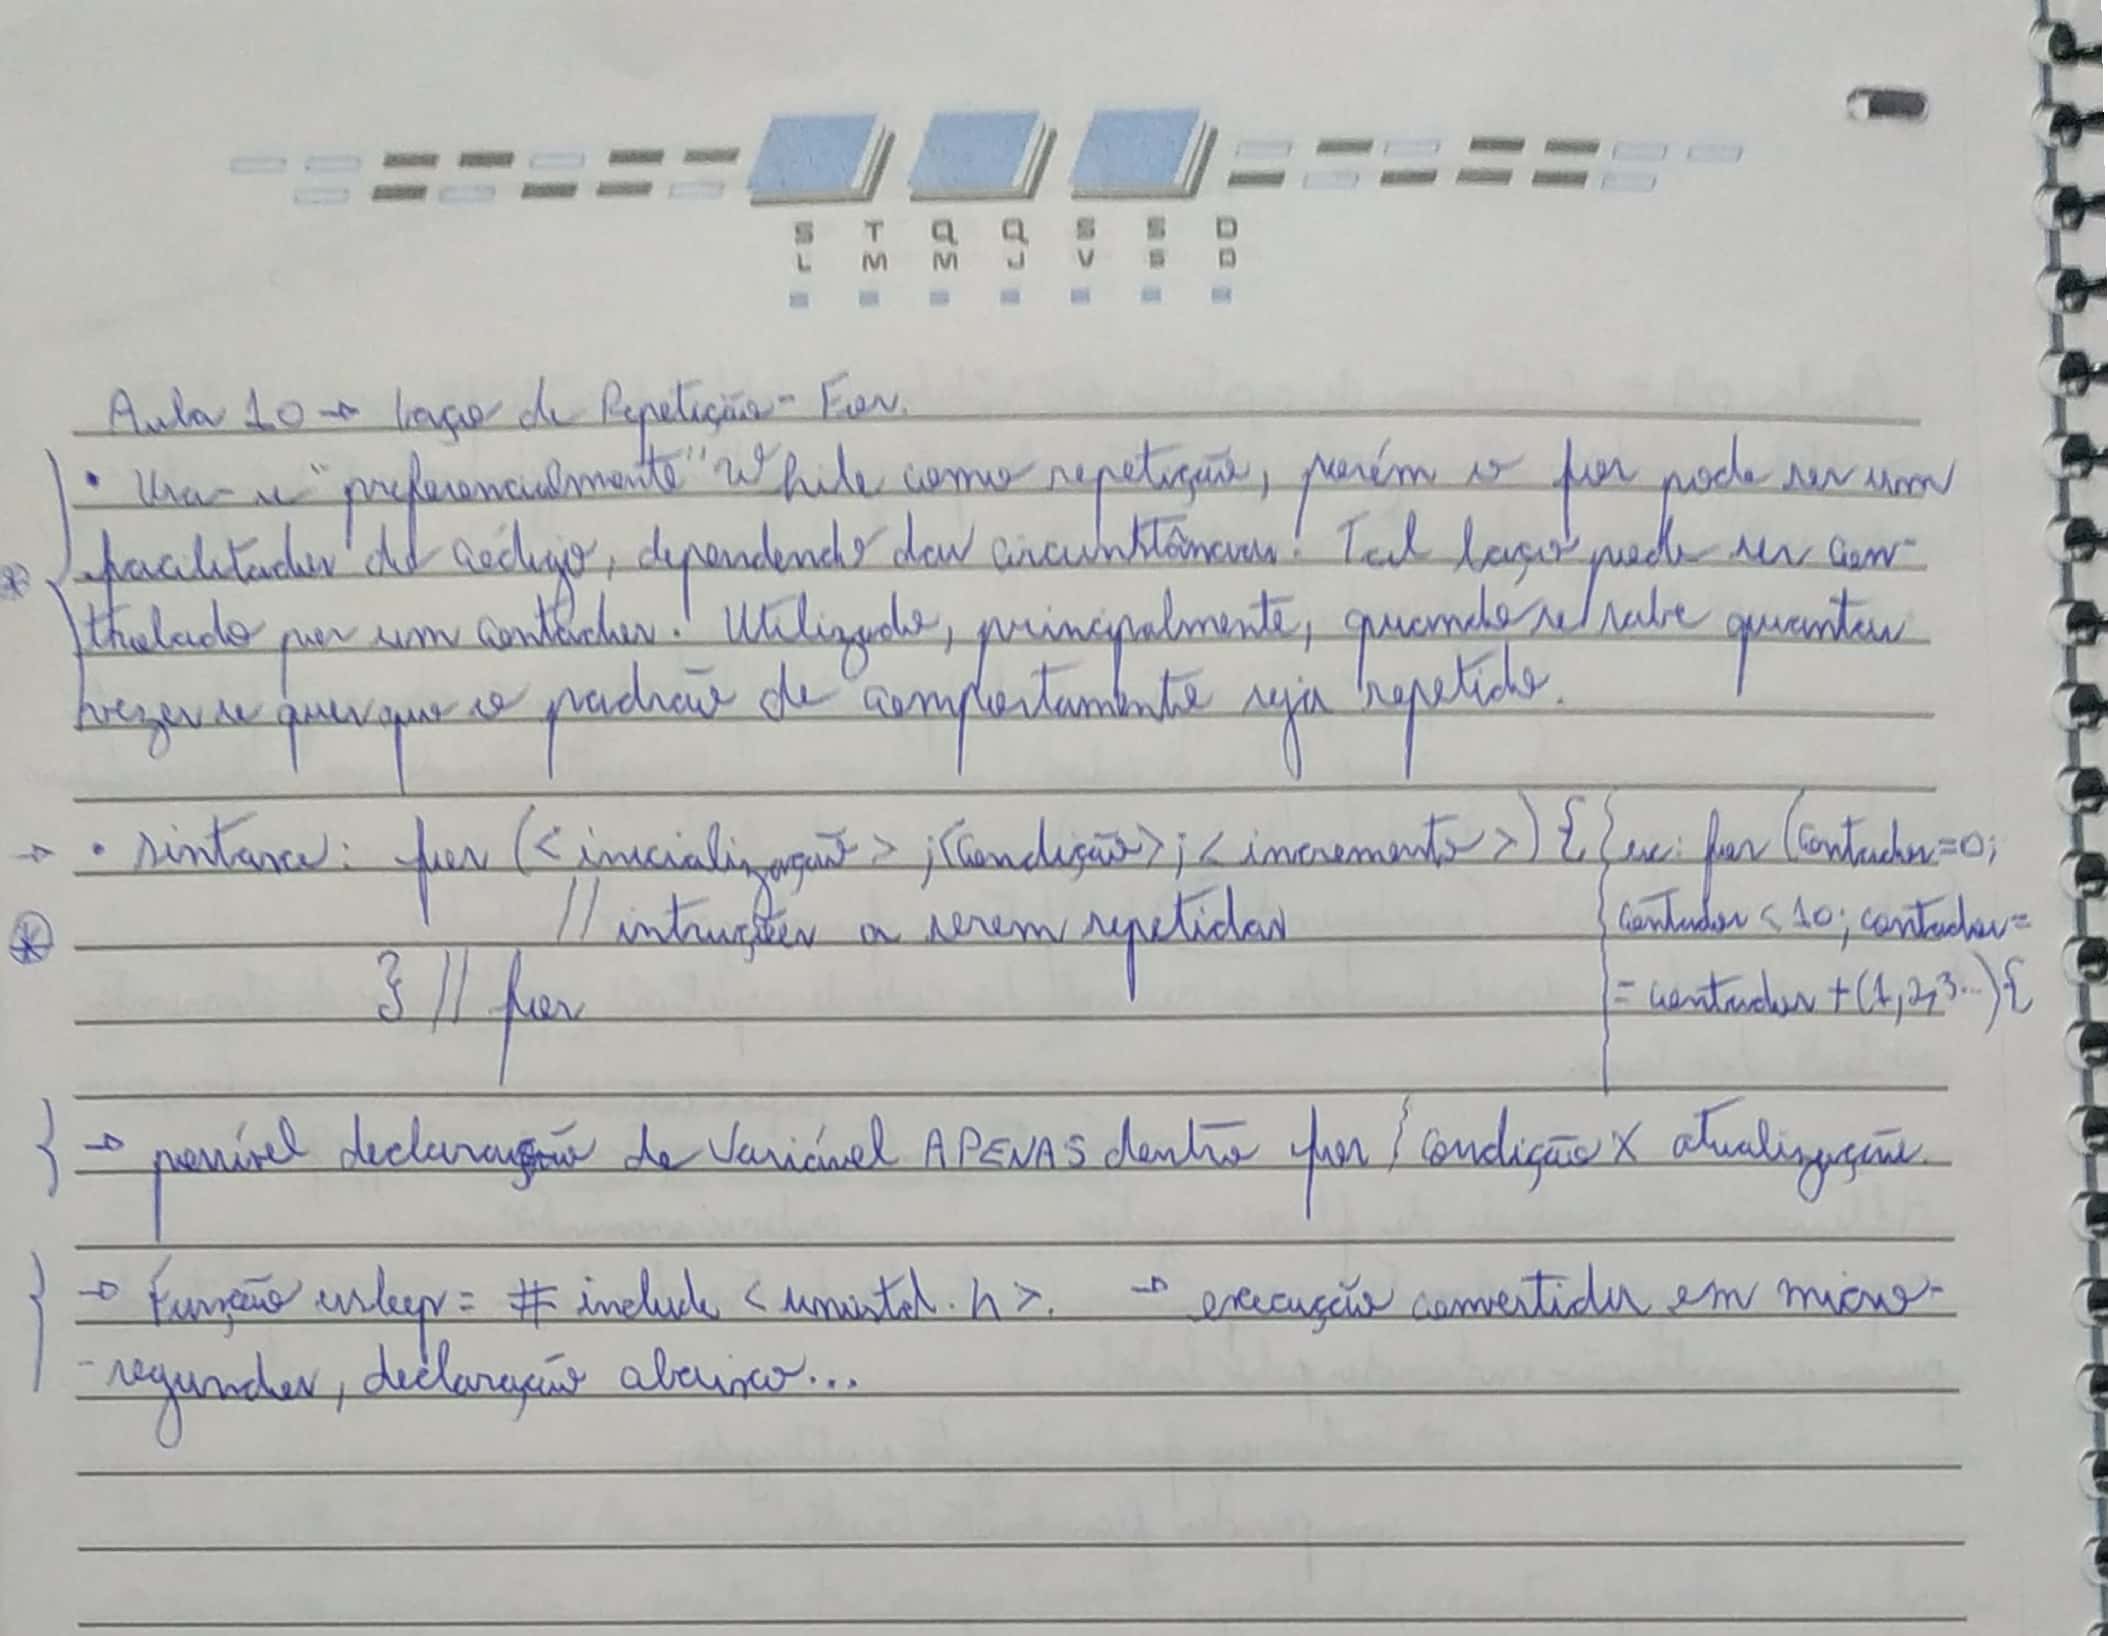 S T Q Q S S D
L M M J V S D
Aula 10 → Laço de Repetição - For.
• Usa-se "preferencialmente" While como repetição, porém o for pode ser um
facilitador do código, dependendo das circunstâncias. Tal laço pode ser con-
trolado por um contador. Utilizado, principalmente, quando se sabe quantas
vezes se quer que o padrão de comportamento seja repetido.
→ • sintaxe: for (<inicialização>;<condição>;<incremento>) { } ex: for (contador=0;
// intruções a serem repetidas contador < 10; contador=
} // for = contador + (1,2,3...) {
} → possível declaração de variável APENAS dentro for } condição X atualização.
} → Função usleep = # include < unistd.h >. → execução convertida em micro-
-segundos, declaração abaixo...